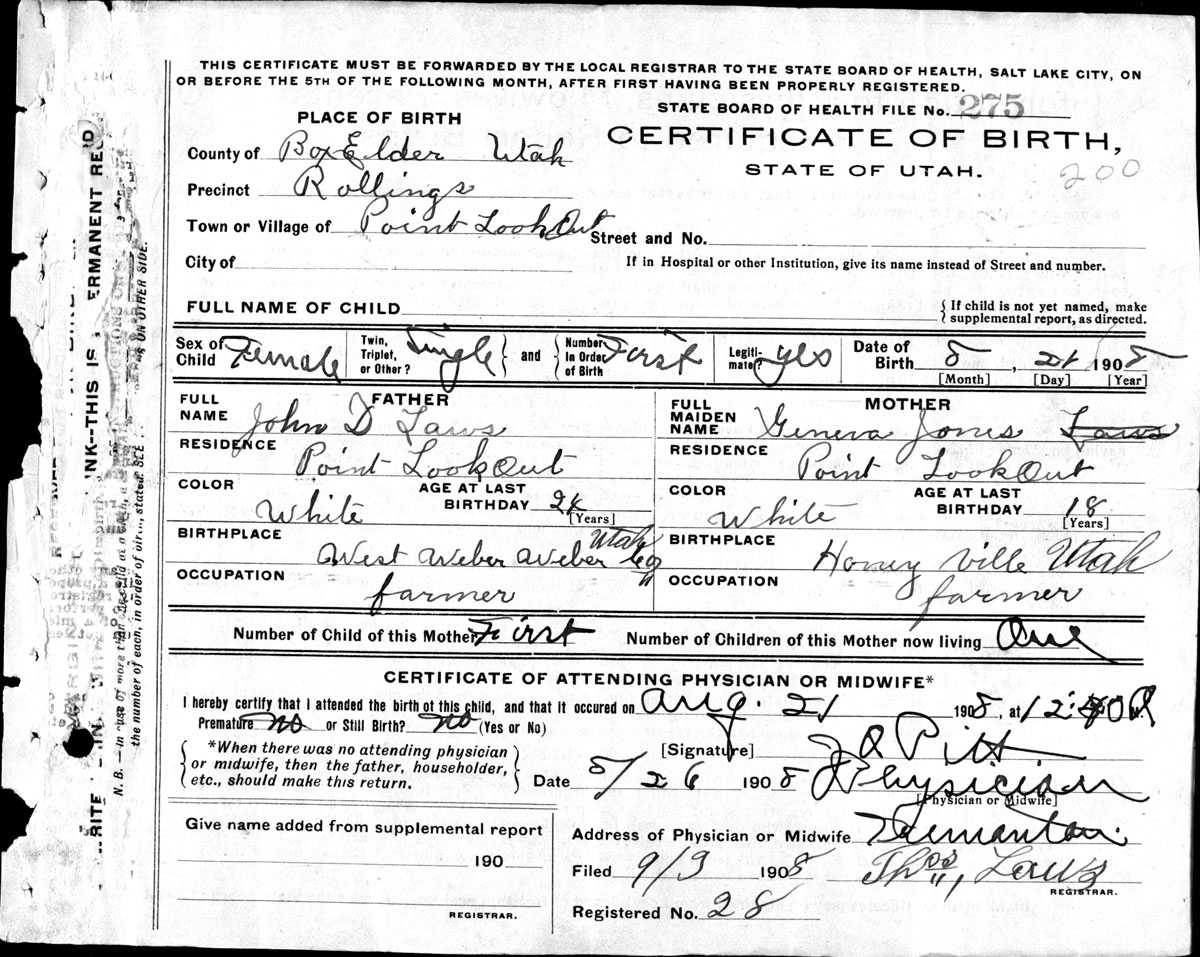 THIS CERTIFICATE MUST BE FORWARDED BY THE LOCAL REGISTRAR TO THE STATE BOARD OF HEALTH, SALT LAKE CITY, ON
OR BEFORE THE 5TH OF THE FOLLOWING MONTH, AFTER FIRST HAVING BEEN PROPERLY REGISTERED.
STATE BOARD OF HEALTH FILE No. 275
PLACE OF BIRTH
CERTIFICATE OF BIRTH,
STATE OF UTAH.
200
County of Box Elder Utah
Precinct Rollings
Town or Village of Point LookOut
Street and No.
City of
If in Hospital or other Institution, give its name instead of Street and number.
FULL NAME OF CHILD
{If child is not yet named, make
supplemental report, as directed.
Sex of Child Female
Twin, Triplet, or Other? Single
and
Number In Order of Birth First
Legiti-mate? yes
Date of Birth 8, 21 1908
[Month] [Day] [Year]
FATHER
FULL NAME John D Laws
RESIDENCE
Point LookOut
COLOR White
AGE AT LAST BIRTHDAY 24
[Years]
BIRTHPLACE
West Weber Weber Co Utah
OCCUPATION
farmer
MOTHER
FULL MAIDEN NAME Geneva Jones Laws
RESIDENCE
Point LookOut
COLOR White
AGE AT LAST BIRTHDAY 18
[Years]
BIRTHPLACE
Honey Ville Utah
OCCUPATION
farmer
Number of Child of this Mother First
Number of Children of this Mother now living One
CERTIFICATE OF ATTENDING PHYSICIAN OR MIDWIFE*
I hereby certify that I attended the birth of this child, and that it occured on Aug. 21 1908, at
Premature no or Still Birth? no (Yes or No)
{*When there was no attending physician
or midwife, then the father, householder,
etc., should make this return.}
[Signature] Pitt
Date 8/26 1908 Physician
[Physician or Midwife]
Give name added from supplemental report
190
REGISTRAR.
Address of Physician or Midwife
Filed 9/3 1908 Thos Laws
REGISTRAR.
Registered No. 28
N. B.
the number of each, in order of
stated. SEE
ON OTHER SIDE.
INK--THIS IS
ERMANENT REC